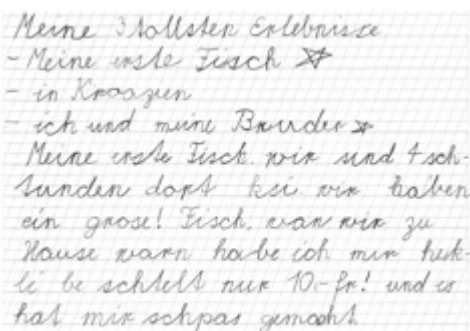 Meine 3 tollsten Erlebnisse
- Meine erste Fisch ☆
- in Kroazien
- ich und meine Bruder ☆
Meine erste Fisch. wir sind 4 sch-
tunden dort ksi. wir haben
ein grose! Fisch. wan wir zu
Hause warn habe ich mir huk-
li be schtelt nur 10.-fr! und es
hat mir schpas gemacht.